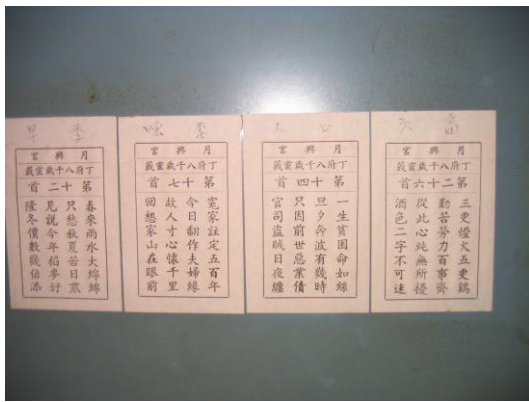 月興宮
丁府八千歲靈籤
第二十六首
三更燈火五更鷄
勤苦勞力百事齊
從此心純無所擾
酒色二字不可迷
月興宮
丁府八千歲靈籤
第十四首
一生貧困命如線
旦夕奔波有幾時
只因前世惡業債
官司盜賊日夜纏
月興宮
丁府八千歲靈籤
第十七首
冤家註定五百年
今日翻作夫婦緣
故人寸心懷千里
回想家山在眼前
月興宮
丁府八千歲靈籤
第十二首
春來雨水大綿綿
只愁秋夏苦日煎
見說今年稻麥好
隆冬價數幾倍添